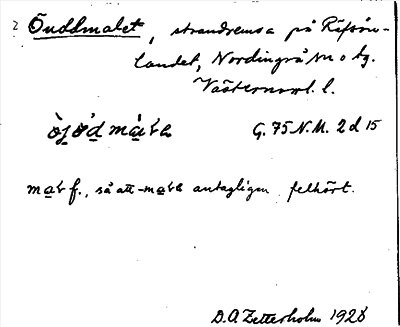 Öuddmalet, strandremsa på Rävsön-
landet, Nordingrå sn o tg.
Västernorrl. l.
G. 75 N.M. 2 d 15
maɾ f., så att -maɾɛ antagligen felhört.
D.O. Zetterholm 1928